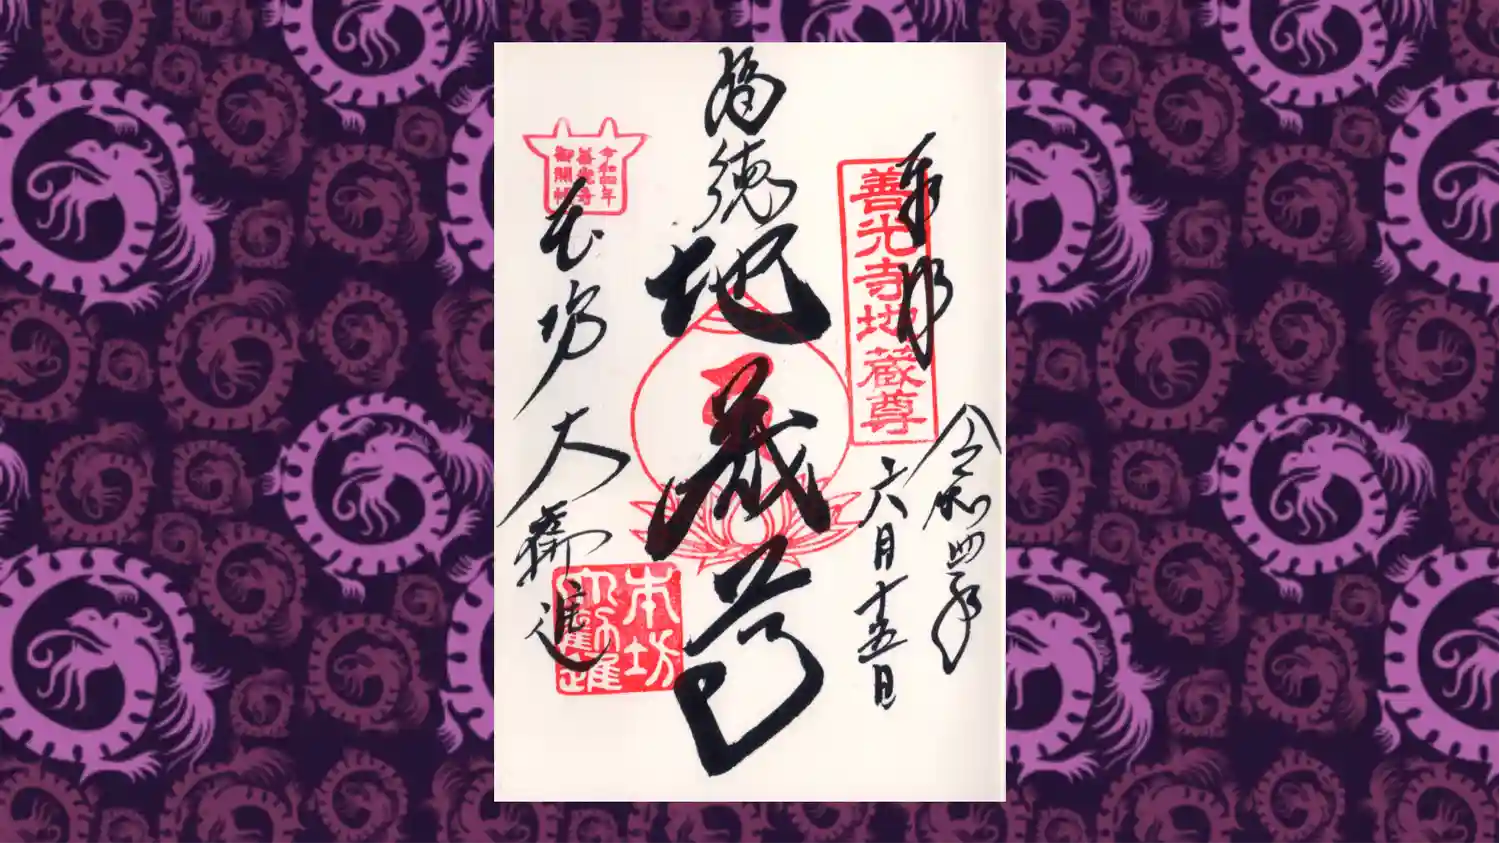 奉拝
善光寺地蔵尊
令和四年
六月十五日
地蔵尊
令和四年
善光寺
御開帳
本坊
大勧進
本坊
大勧進